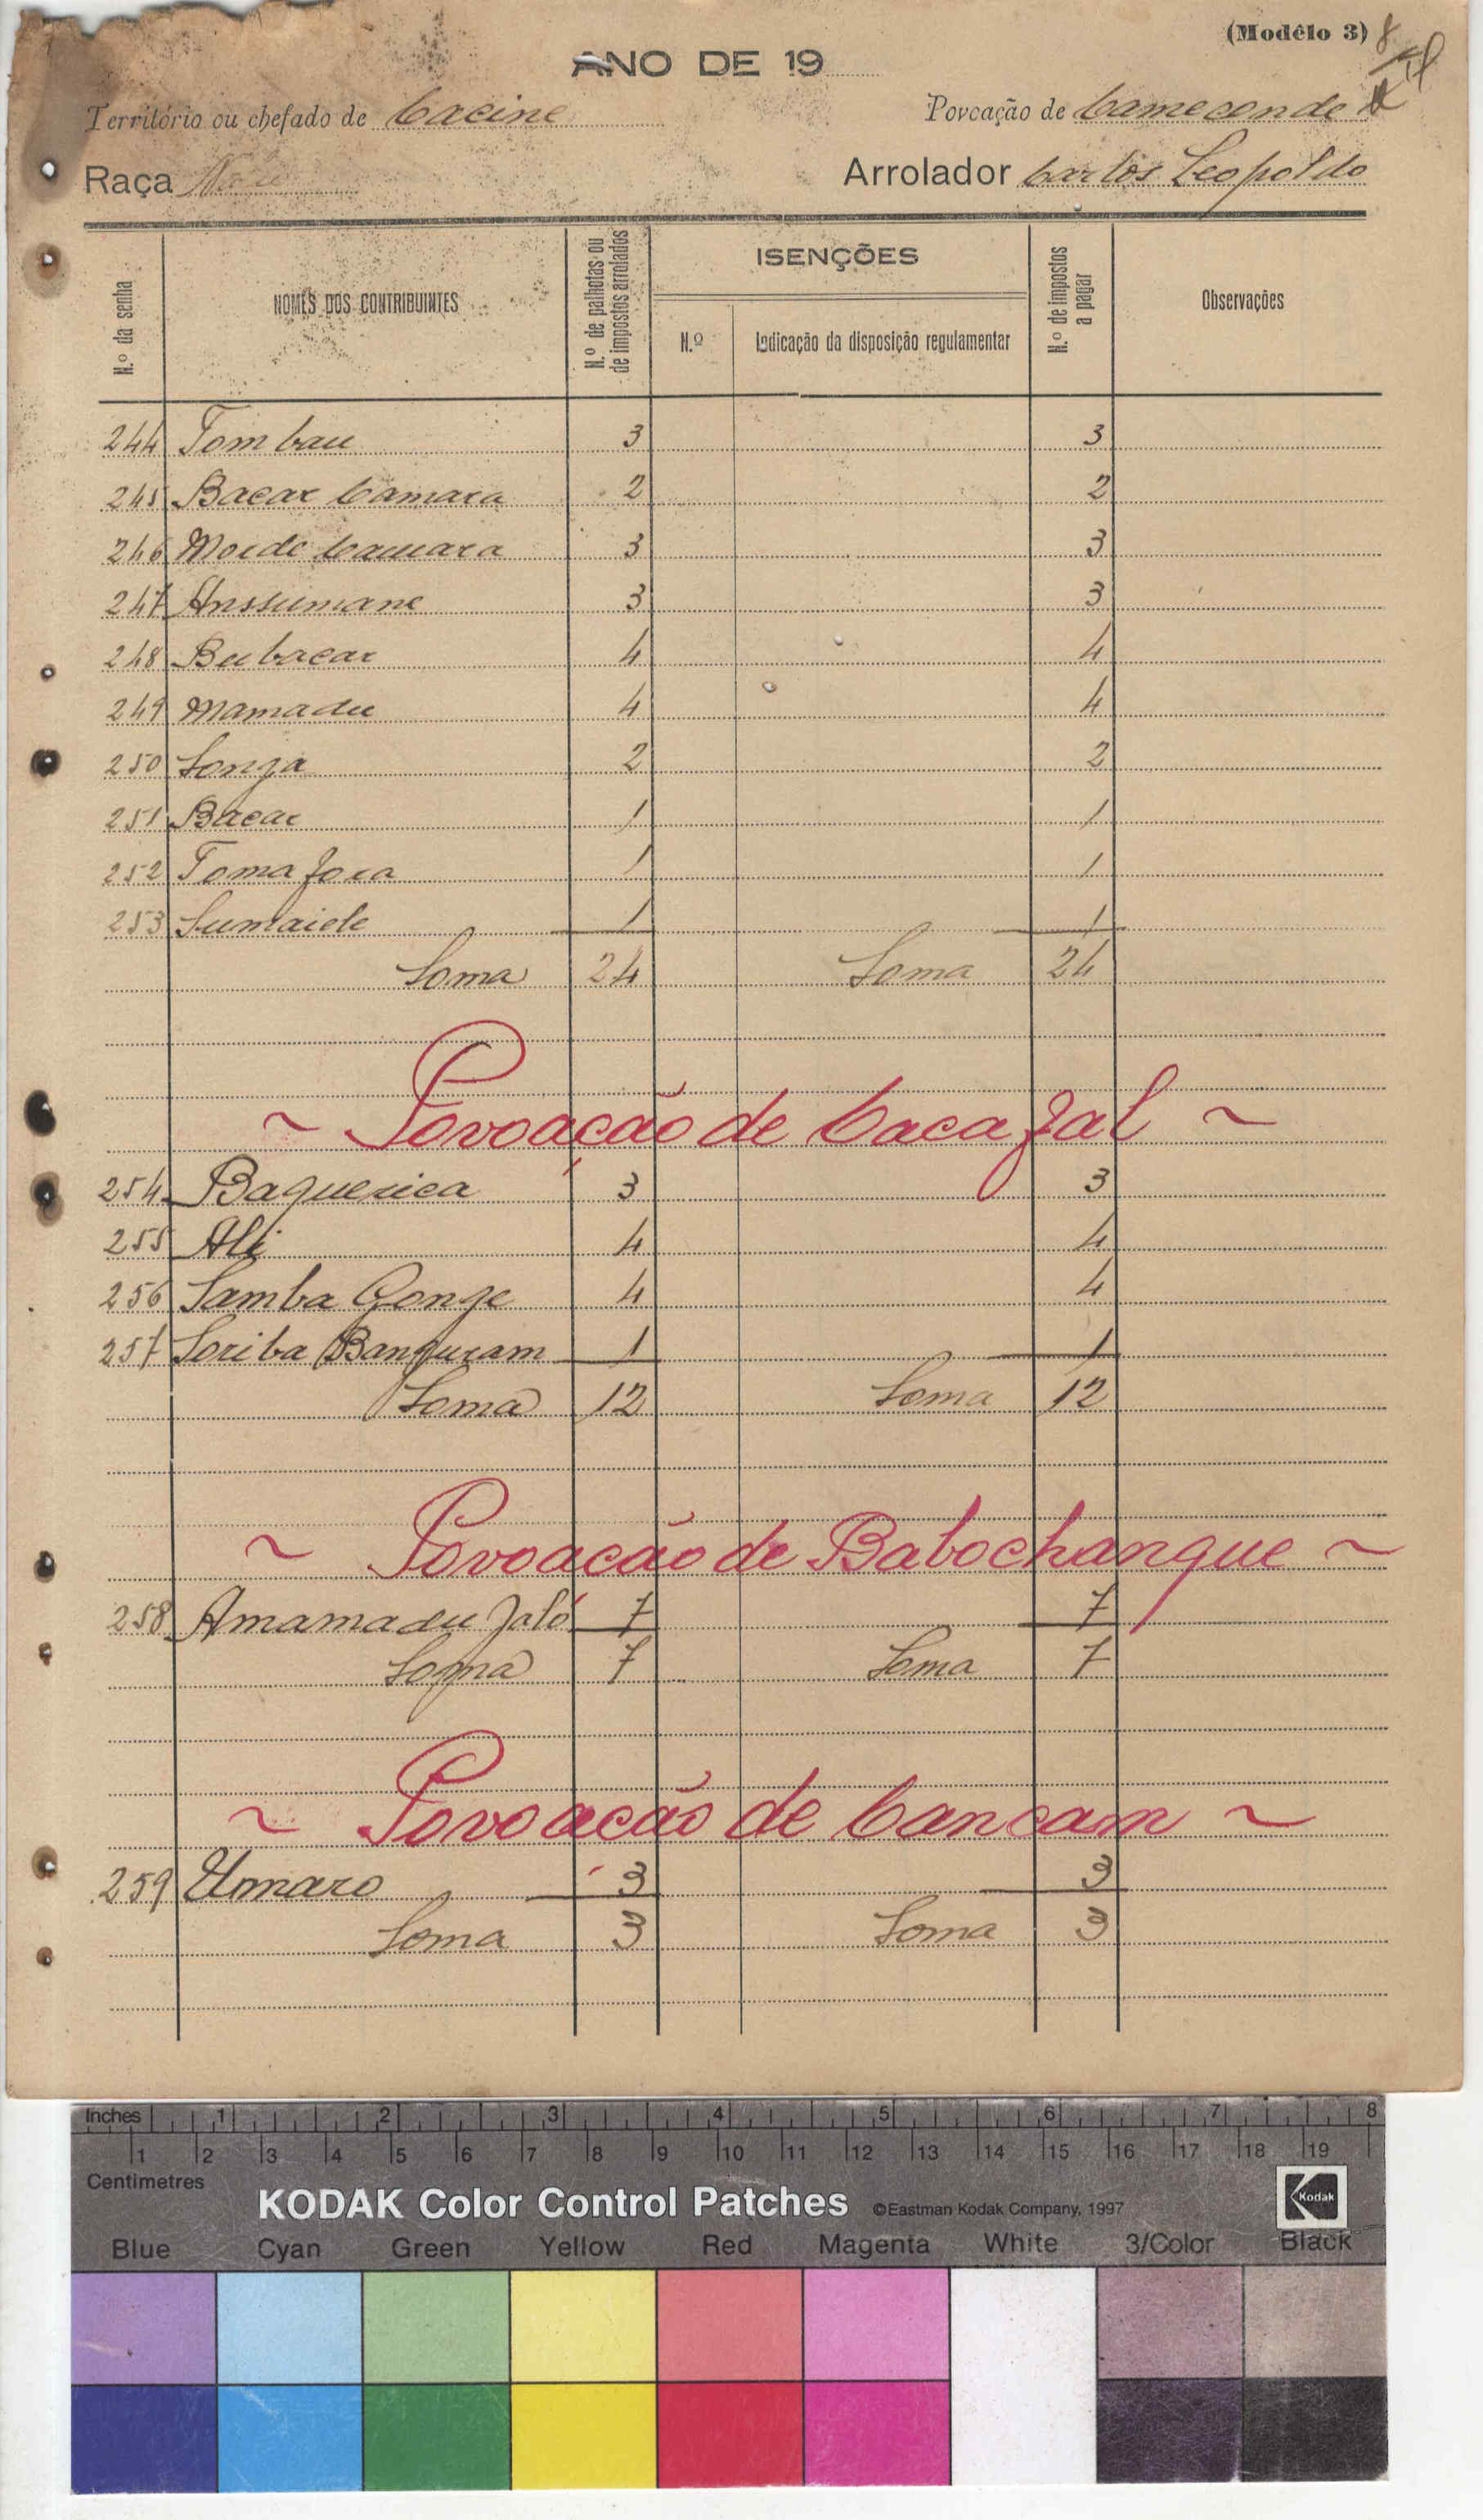 (Modêlo 3) 8
ANO DE 19
Território ou chefado de Cacine Povoação de Cameconde
Raça Nalú Arrolador Carlos Leopoldo
N.º da senha NOMES DOS CONTRIBUINTES N.º de palhotas ou de impostos arrolados ISENÇÕES N.º Indicação da disposição regulamentar N.º de impostos a pagar Observações
244 Tombau 3 3
245 Bacar Camara 2 2
246 Morde Camara 3 3
247 Anssumane 3 3
248 Bubacar 4 4
249 Mamadu 4 4
250 Sonja 2 2
251 Bacar 1 1
252 Toma Jora 1 1
253 Sumaiele 1 1
Soma 24 Soma 24
~ Povoação de Caca Jal ~
254 Baguerica 3 3
255 Ali 4 4
256 Samba Gonge 4 4
257 Soriba Banguram 1 1
Soma 12 Soma 12
~ Povoacão de Babochanque ~
258 Amamadu Jaló 7 7
Soma 7 Soma 7
~ Povoacão de Cancam ~
259 Umaro 3 3
Soma 3 Soma 3
Inches 1 2 3 4 5 6 7 8
1 2 3 4 5 6 7 8 9 10 11 12 13 14 15 16 17 18 19
Centimetres
KODAK Color Control Patches ©Eastman Kodak Company, 1997 Kodak
Blue Cyan Green Yellow Red Magenta White 3/Color Black